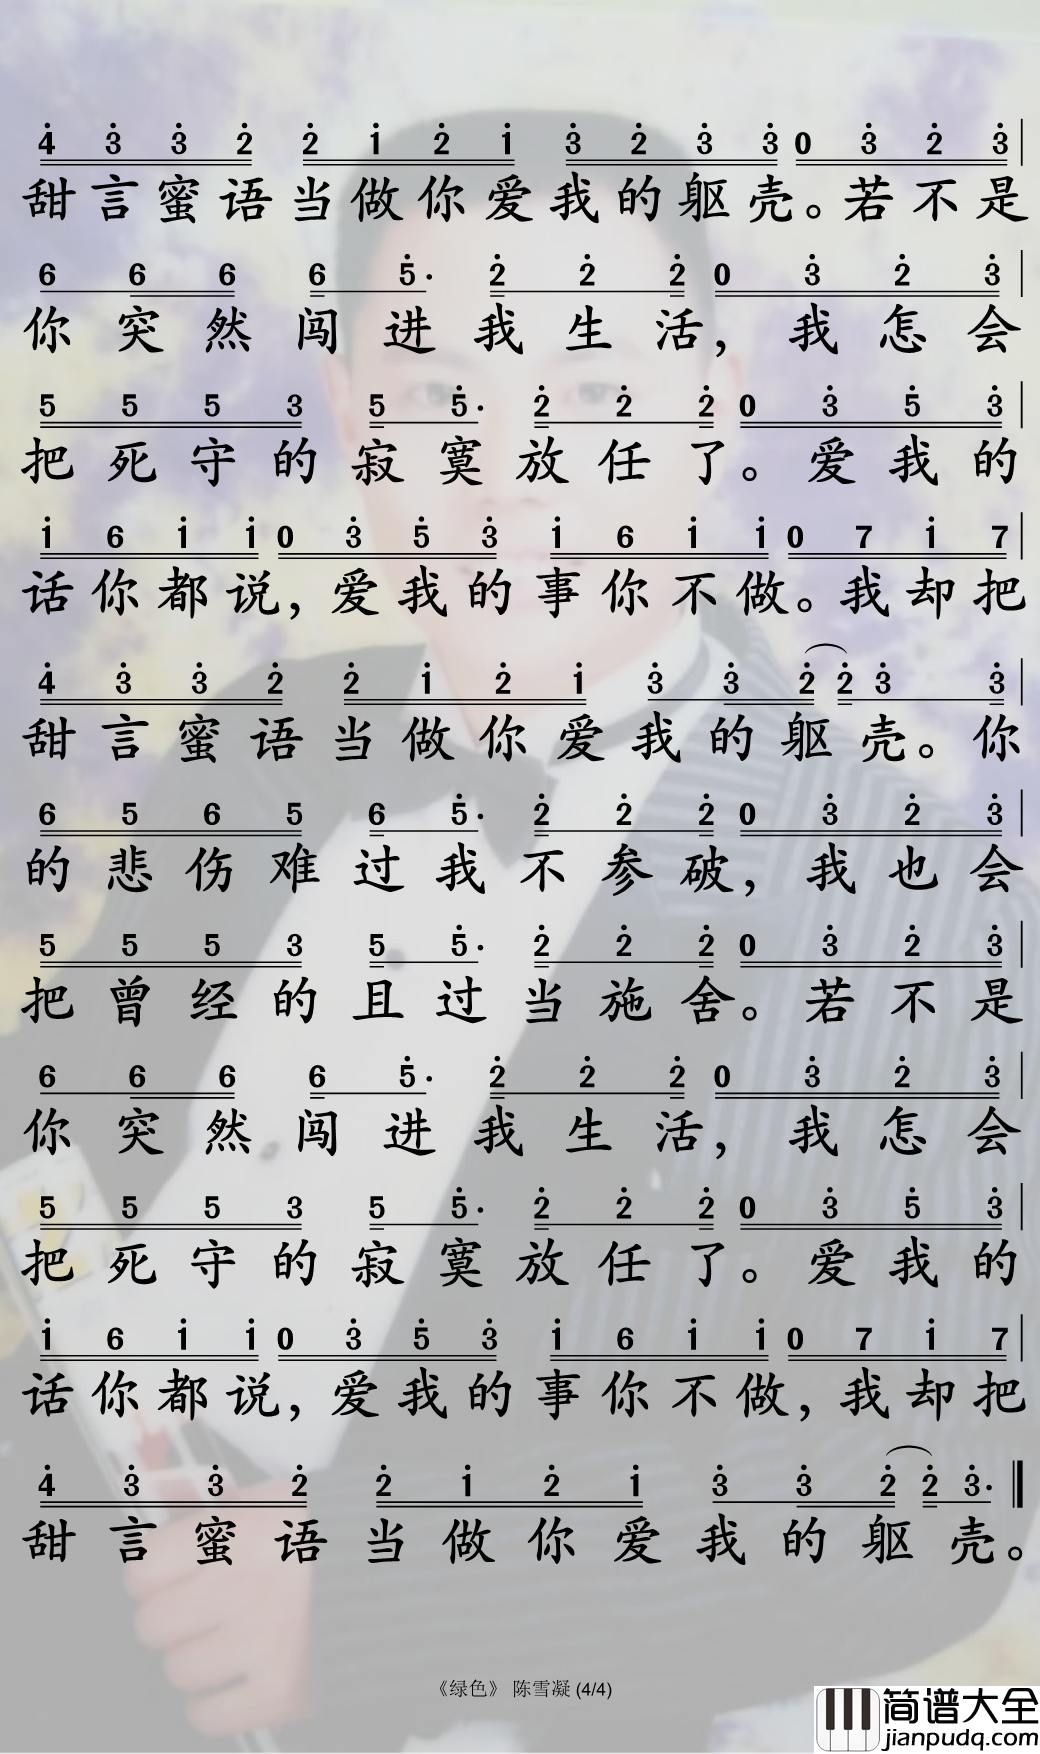 4 3 3 2 2 1 2 1 3 2 3 3 0 3 2 3
甜言蜜语当做你爱我的躯壳。若不是
6 6 6 6 5· 2 2 2 0 3 2 3
你突然闯进我生活，我怎会
5 5 5 3 5 5· 2 2 2 0 3 5 3
把死守的寂寞放任了。爱我的
1 6 1 1 0 3 5 3 1 6 1 1 0 7 1 7
话你都说，爱我的事你不做。我却把
4 3 3 2 2 1 2 1 3 3 2 2 3 3
甜言蜜语当做你爱我的躯壳。你
6 5 6 5 6 5· 2 2 2 0 3 2 3
的悲伤难过我不参破，我也会
5 5 5 3 5 5· 2 2 2 0 3 2 3
把曾经的且过当施舍。若不是
6 6 6 6 5· 2 2 2 0 3 2 3
你突然闯进我生活，我怎会
5 5 5 3 5 5· 2 2 2 0 3 5 3
把死守的寂寞放任了。爱我的
1 6 1 1 0 3 5 3 1 6 1 1 0 7 1 7
话你都说，爱我的事你不做，我却把
4 3 3 2 2 1 2 1 3 3 2 2 3·
甜言蜜语当做你爱我的躯壳。
《绿色》 陈雪凝 (4/4)
简谱大全
jianpudq.com